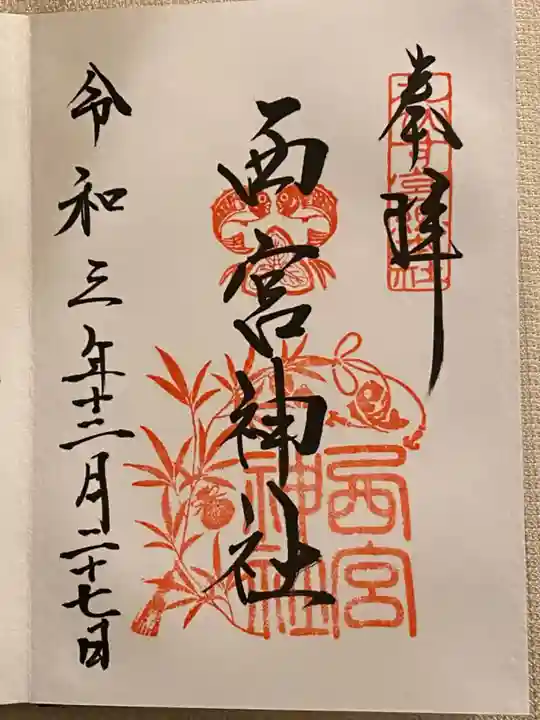 奉拝
西宮神社
西宮
神社
令和三年十二月二十七日